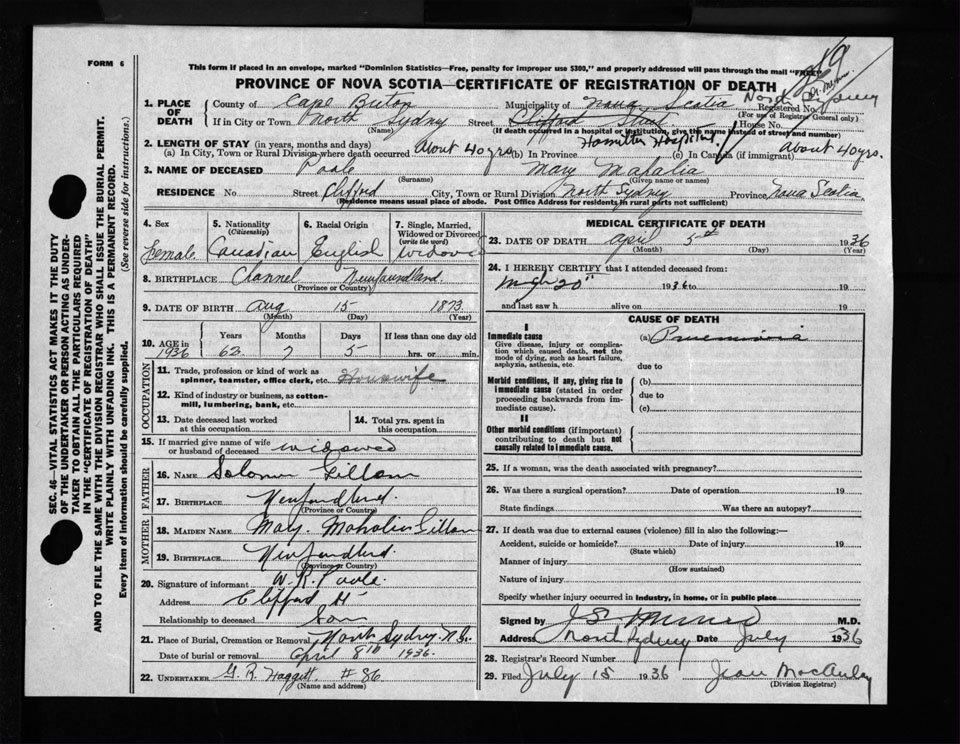 FORM 6
This form if placed in an envelope, marked "Dominion Statistics—Free, penalty for improper use $300," and properly addressed will pass through the mail "FREE"
PROVINCE OF NOVA SCOTIA—CERTIFICATE OF REGISTRATION OF DEATH
1. PLACE OF DEATH
County of Cape Breton Municipality of Nova Scotia Registered No.
(For use of Registrar General only)
North Sydney
If in City or Town North Sydney Street Clifford Street House No.
(Name) (If death occurred in a hospital or institution, give the name instead of street and number)
Hamilton Hospital
2. LENGTH OF STAY (in years, months and days)
(a) In City, Town or Rural Division where death occurred about 40 yrs. (b) In Province (c) In Canada (if immigrant) about 40 yrs.
3. NAME OF DECEASED Poole Mary Mahalia
(Surname) (Given name or names)
RESIDENCE No. Street Clifford City, Town or Rural Division North Sydney Province Nova Scotia
(Residence means usual place of abode. Post Office Address for residents in rural parts not sufficient)
4. Sex
Female
5. Nationality
(Citizenship)
Canadian
6. Racial Origin
English
7. Single, Married, Widowed or Divorced
(write the word)
Widow
8. BIRTHPLACE Channel Newfoundland.
(Province or Country)
9. DATE OF BIRTH Aug 15 1873
(Month) (Day) (Year)
10. AGE in 1936
Years Months Days If less than one day old
62 7 5 hrs. or min.
OCCUPATION
11. Trade, profession or kind of work as spinner, teamster, office clerk, etc. Housewife
12. Kind of industry or business, as cotton-mill, lumbering, bank, etc.
13. Date deceased last worked at this occupation
14. Total yrs. spent in this occupation
15. If married give name of wife or husband of deceased widowed
FATHER
16. NAME Solomon Gillam
17. BIRTHPLACE Newfoundland.
(Province or Country)
MOTHER
18. MAIDEN NAME Mary Mahalia Gillam
19. BIRTHPLACE Newfoundland.
(Province or Country)
20. Signature of informant W. R. Poole.
Address Clifford St
Relationship to deceased Son
21. Place of Burial, Cremation or Removal North Sydney N.S.
Date of burial or removal April 8th 1936.
22. UNDERTAKER G. R. Haggett #86
(Name and address)
MEDICAL CERTIFICATE OF DEATH
23. DATE OF DEATH April 5th 1936
(Month) (Day) (Year)
24. I HEREBY CERTIFY that I attended deceased from:
20th 1936 to 19
and last saw h alive on 19
CAUSE OF DEATH
I
Immediate cause
Give disease, injury or complication which caused death, not the mode of dying, such as heart failure, asphyxia, asthenia, etc.
(a) Pneumonia
due to
Morbid conditions, if any, giving rise to immediate cause (stated in order proceeding backwards from immediate cause).
(b)
due to
(c)
II
Other morbid conditions (if important) contributing to death but not causally related to immediate cause.
25. If a woman, was the death associated with pregnancy?
26. Was there a surgical operation? Date of operation 19
State findings Was there an autopsy?
27. If death was due to external causes (violence) fill in also the following:—
Accident, suicide or homicide? Date of injury 19
(State which)
Manner of injury
(How sustained)
Nature of injury
Specify whether injury occurred in industry, in home, or in public place
Signed by M.D.
Address North Sydney Date July 1936
28. Registrar's Record Number
29. Filed July 15 1936 Jean MacAulay
(Division Registrar)
SEC. 46—VITAL STATISTICS ACT MAKES IT THE DUTY
OF THE UNDERTAKER OR PERSON ACTING AS UNDERTAKER TO OBTAIN ALL THE PARTICULARS REQUIRED
IN THE "CERTIFICATE OF REGISTRATION OF DEATH"
AND TO FILE THE SAME WITH THE DIVISION REGISTRAR WHO SHALL ISSUE THE BURIAL PERMIT.
WRITE PLAINLY WITH UNFADING INK. THIS IS A PERMANENT RECORD.
Every item of information should be carefully supplied. (See reverse side for instructions.)